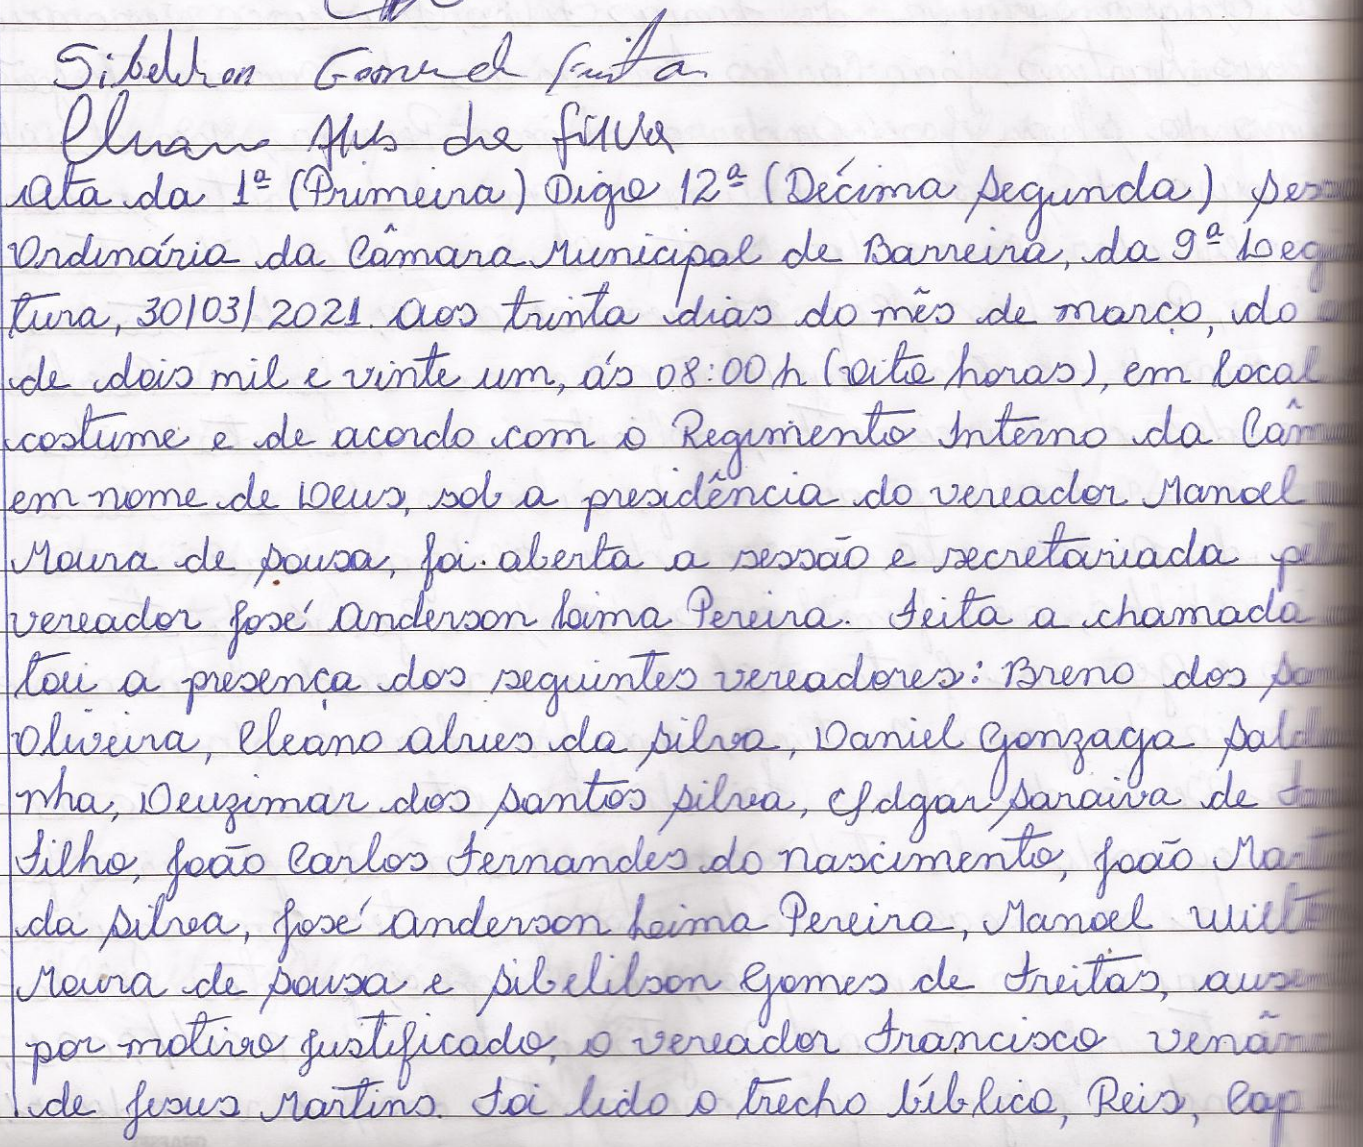 Sibelilson Gomes de Freitas
Cleano Alves da Silva
Ata da 1ª (Primeira) Digo 12ª (Décima Segunda)
Ordinária da Câmara Municipal de Barreira, da 9ª Leg
tura, 30/03/2021. Aos trinta dias do mês de março, do
de dois mil e vinte um, ás 08:00h (oito horas), em local
costume e de acordo com o Regimento Interno da Câm
em nome de Deus, sob a presidência do vereador Manoel
Moura de Sousa, foi aberta a sessão e secretariada
vereador José Anderson Leima Pereira. Feita a chamada
tou a presença dos seguintes vereadores: Breno dos
Oliveira, Cleano Alves da Silva, Daniel Gonzaga Sald
nha, Deuzimar dos Santos Silva, Edgar Saraiva de
Filho, João Carlos Fernandes do Nascimento, João Mar
da Silva, José Anderson Leima Pereira, Manoel Will
Moura de Sousa e Sibelilson Gomes de Freitas, ause
por motivo justificado, o vereador Francisco Venân
de Jesus Martins. Foi lido o trecho bíblico, Reis, Cap